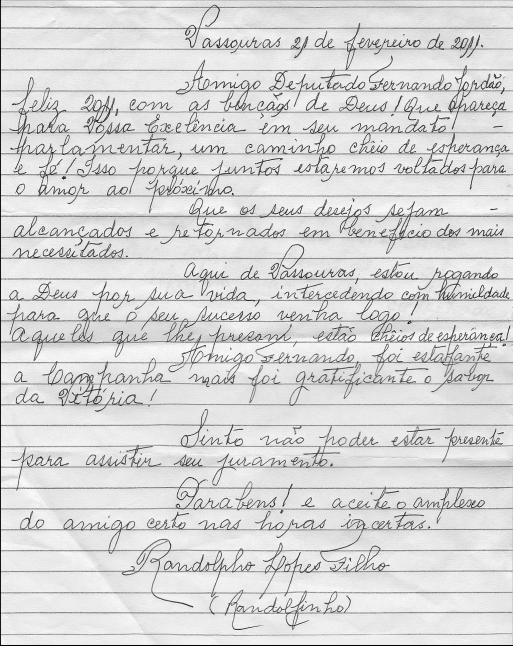 Vassouras 21 de fevereiro de 2011.
Amigo Deputado Fernando Jordão,
feliz 2011, com as bençãos de Deus! Que apareça
para Vossa Excelência em seu mandato -
parlamentar, um caminho cheio de esperança
e fé! Isso porque juntos estaremos voltados para
o amor ao próximo.
Que os seus desejos sejam -
alcançados e retornados em benefício dos mais
necessitados.
Aqui de Vassouras, estou rogando
a Deus por sua vida, intercedendo com humildade
para que o seu sucesso venha logo!
Aqueles que lhe prezam, estão cheios de esperança!
Amigo Fernando, foi estafante
a Campanha mais foi gratificante o sabor
da Vitória!
Sinto não poder estar presente
para assistir seu juramento.
Parabens! e aceite o amplexo
do amigo certo nas horas incertas.
Randolpho Lopes Filho
(Randolfinho)